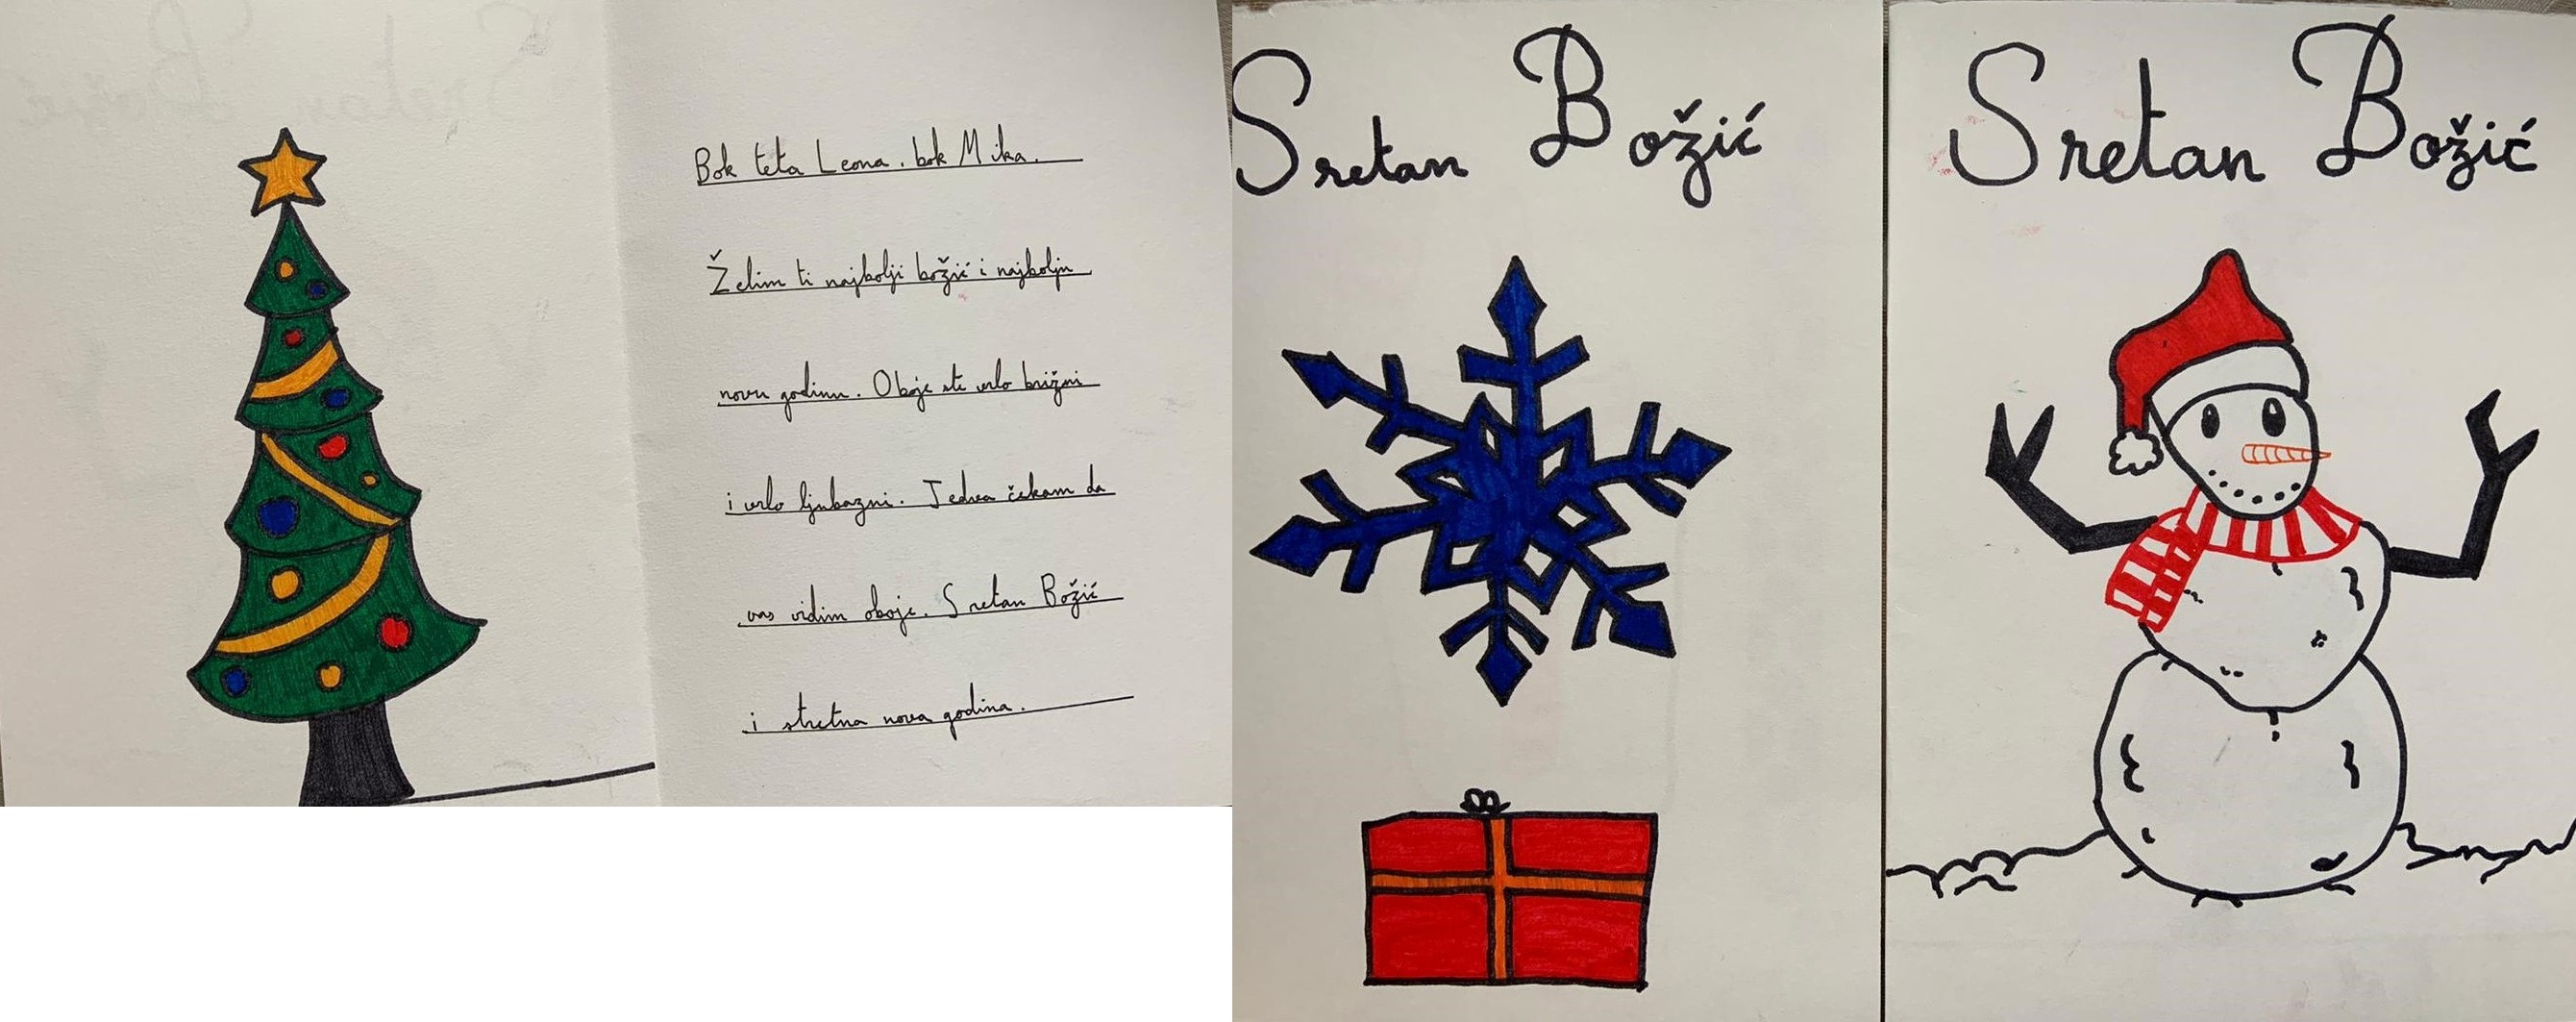 Bok teta Leona. bok Mika.
Želim ti najbolji božić i najbolju
novu godinu. Oboje ste vrlo brižni
i vrlo ljubazni. Jedva čekam da
vas vidim oboje. Sretan Božić
i stretna nova godina.
Sretan Božić
Sretan Božić